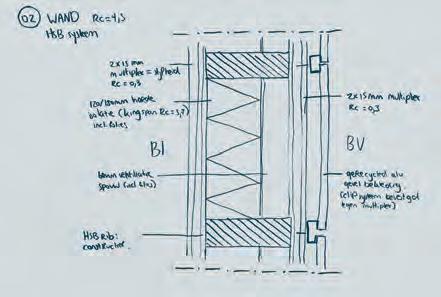 02 WAND Rc=4,5
HSB systeem
2x15 mm
multiplex = stijfheid
Rc = 0,3
isolatie (kingspan Rc=3,7)
incl. folies
BI
60mm ventilatie
spouw (incl.
HSB rib:
constructie.
2x15 mm multiplex
Rc = 0,3
BV
gerecycled alu
gevel bekleding
(clip systeem bevestigd
tegen multiplex)